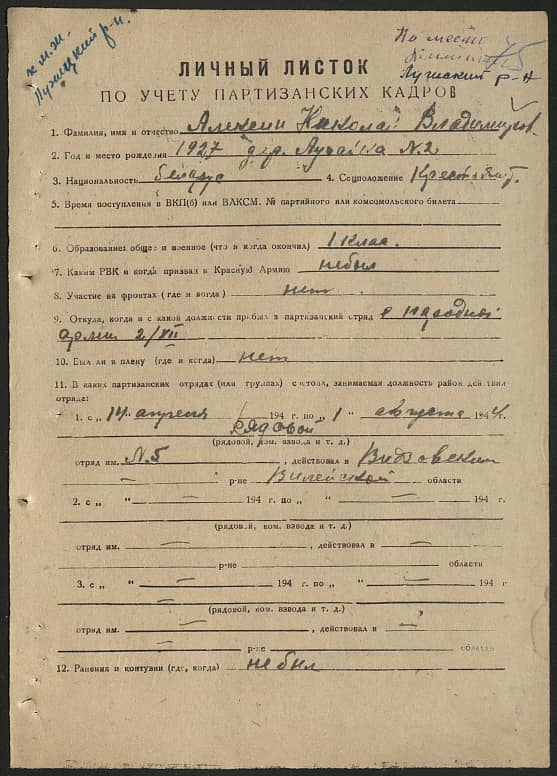 к м.ж.
По месту
75
Лужецкий р-н.
р-н
ЛИЧНЫЙ ЛИСТОК
ПО УЧЕТУ ПАРТИЗАНСКИХ КАДРОВ
1. Фамилия, имя и отчество Алексин Николай Владимиров.
2. Год и место рождения 1927 дер. Лучайка N.2
3. Национальность беларус 4. Соцположение Крестьян.
5. Время поступления в ВКП(б) или ВЛКСМ. № партийного или комсомольского билета
6. Образование: общее и военное (что и когда окончил) 1 клас.
7. Каким РВК и когда призван в Красную Армию небыл
8. Участие на фронтах (где и когда) нет
9. Откуда, когда и с какой должности прибыл в партизанский отряд с народной
армии 2/VII
10. Был ли в плену (где и когда) нет
11. В каких партизанских отрядах (или группах) состоял, занимаемая должность район действия
отряда:
1. с „ 14 апреля 194 г. по „ 1 „ августа 1944 г.
Рядовой
(рядовой, ком. взвода и т. д.)
отряд им. N.5 , действовал в Видзовском
— р-не Вилейской области
2. с „ „ — 194 г. по „ „ — 194 г.
(рядовой, ком. взвода и т. д.)
отряд им. — , действовал в —
р-не области
3. с „ „ — 194 г. по „ „ — 194 г
(рядовой, ком. взвода и т. д.)
отряд им. — , действовал в —
— р-не области
12. Ранения и контузии (где, когда) небыл